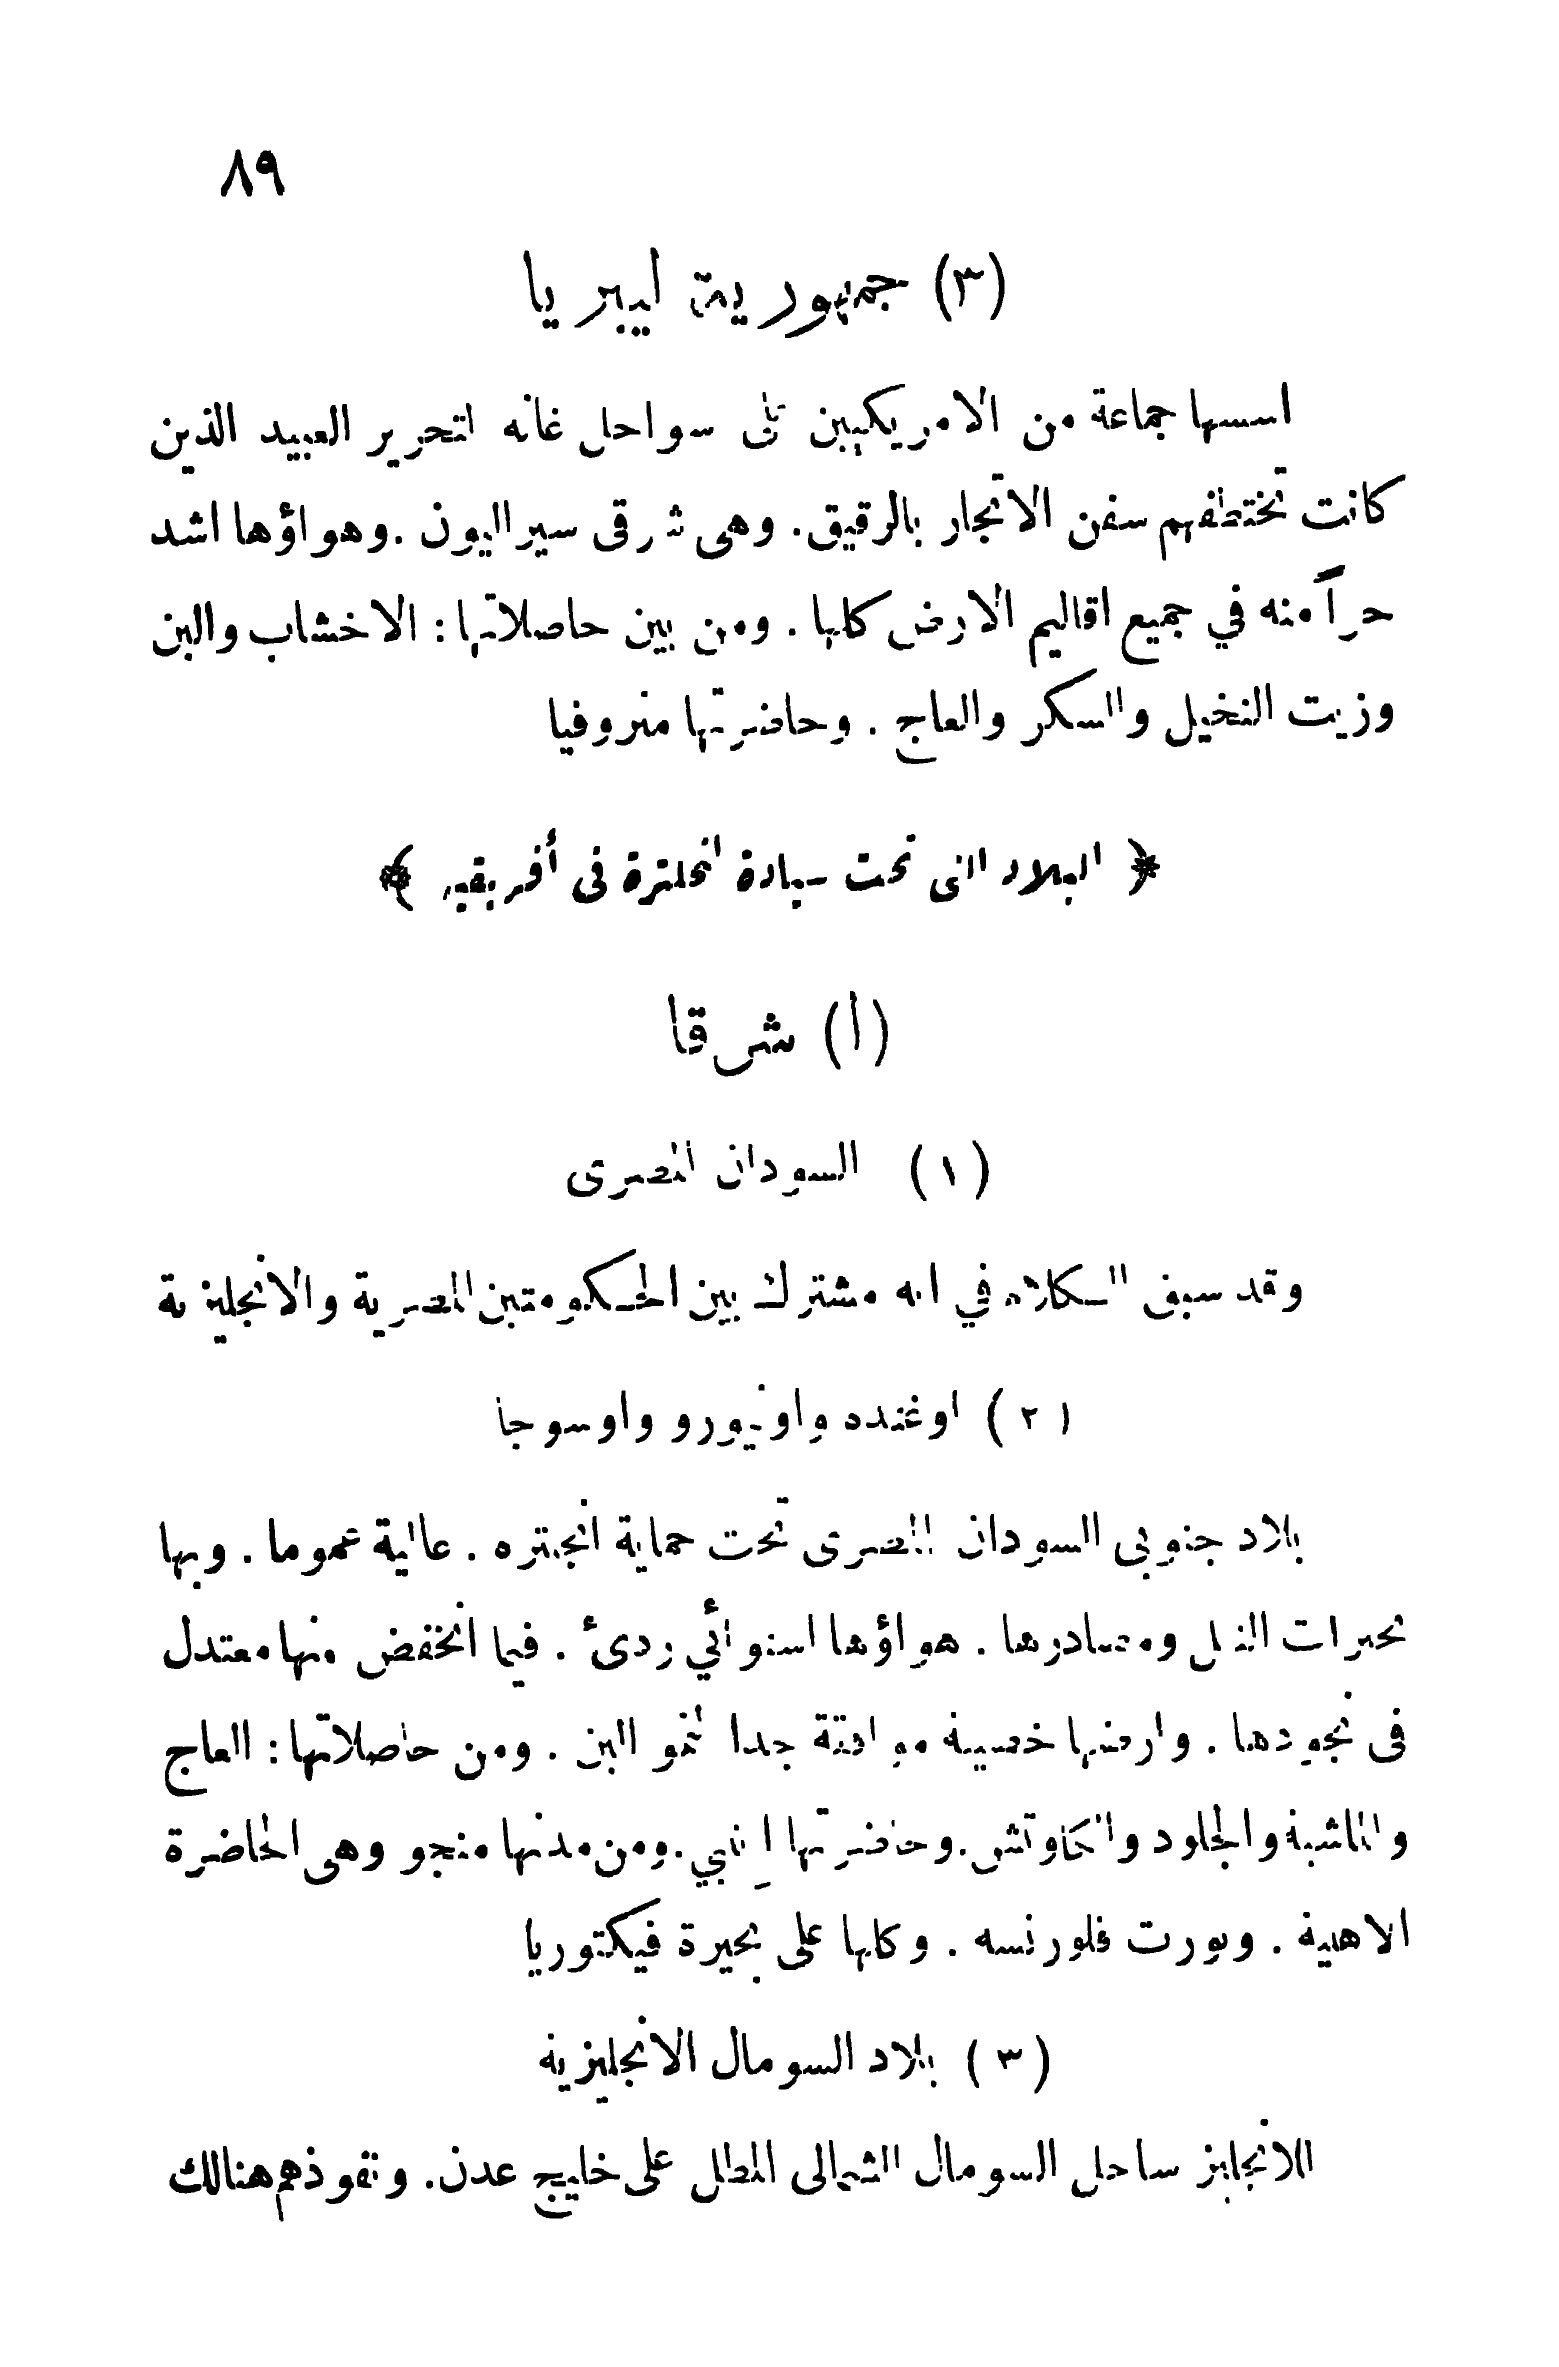 ٨٩
(٣) جمهورية ليبريا
اسسها جماعة من الامريكيين على سواحل غانه لتحرير العبيد الذين
كانت تختطفهم سفن الاتجار بالرقيق. وهى شرقى سيراليون. وهواؤها اشد
حراً منه في جميع اقاليم الارض كلها. ومن بين حاصلاتها: الاخشاب والبن
وزيت النخيل والسكر والعاج. وحاضرتها منروفيا
﴿ البلاد التى تحت سيادة انجلترة فى أفريقيه ﴾
(أ) شرقا
(١) السودان المصرى
وقد سبق الكلام في انه مشترك بين الحكومتين المصرية والانجليزية
(٢) اوغنده واونيورو واوسوجا
بلاد جنوبى السودان المصرى تحت حماية انجلتره. عالية عموما. وبها
بحيرات النيل ومصادرها. هواؤها استوائي ردىء. فيما انخفض منها معتدل
فى نجودها. وارضها خصيبة موافقة جدا لنمو البن. ومن حاصلاتها: العاج
والماشية والجلود والكاوتش. وحاضرتها إنتابي. ومن مدنها منجو وهى الحاضرة
الاهلية. وبورت فلورنسه. وكلها على بحيرة فيكتوريا
(٣) بلاد السومال الانجليزية
للانجليز ساحل السومال الشمالى المطل على خليج عدن. ونفوذهم هنالك